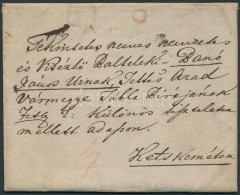 Tekintetes nemes nemzetes
és Vitézlő Balteleki Danó
János Urnak, Tettes Arad
Vármegye Tábla Birájának
tisztelettel
mellett adasson.
Ketskeméten